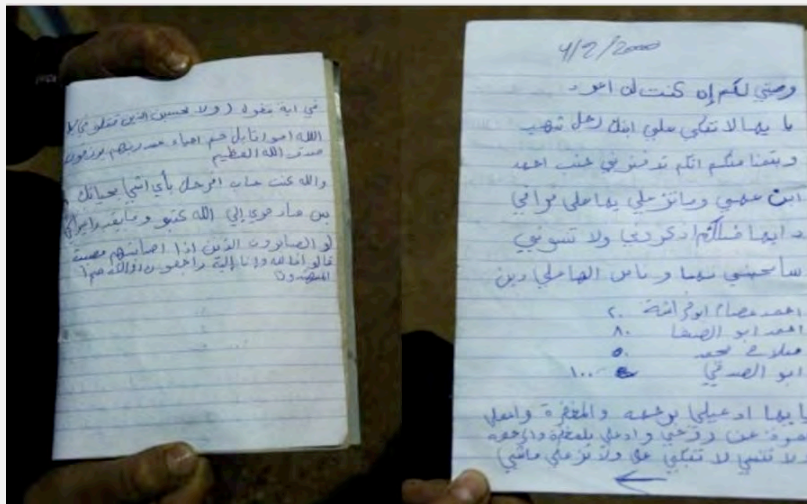 4/2/2000
وصتي لكم إن كنت لن اعود
ما يها لا تبكي علي ابنك رحل شهيد
وبتمنا منكم انكم تدفنوني جنب احمد
ابن عمي وما تزعلي يما على فراقي
دايما اذكروني ولا تنسوني
سامحيني يما وناس الهاملي دين
احمد عصام ابو ٢٠
احمد ابو الصفا ٨٠
محمد ٥٠
ابو ١٠٠
يا يما ادعيلي برحمه والمغفرة
عن روحي وادعلي بلمغفرة والرحمه
ولا تنسي لا تبكي علي ولا تزعلي ماشي
في اية بتقول ولا تحسبن الذين قتلو في سبيل
الله امواتا بل هم احياء عند ربهم يرزقون
صدق الله العظيم
والله كنت حاب افرحك بأي اشي بحياتك
بس صار هوي إلي الله كتبو وما بقدر
لو الصابرون الذين اذا اصابتهم مصيبة
قالو انا لله وانا إلية راجعون اولائك هم
المهتدون